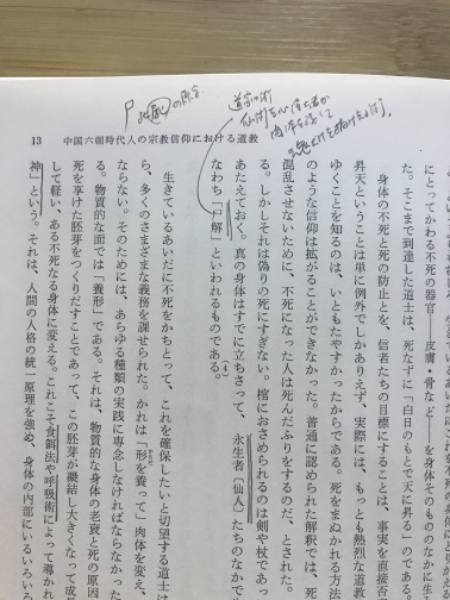 道家の術
13 中国六朝時代人の宗教信仰における道教
にとってかわる不死の器官——皮膚・骨など——を身体そのもののなかに生
た。そこまで到達した道士は、死なずに「白日のもとで天に昇る」のである。
身体の不死と死の防止とを、信者たちの目標にすることは、事実を直接否
昇天ということは単に例外でしかありえず、実際には、もっとも熱烈な道教
ゆくことを知るのは、いともたやすかったからである。死をまぬかれる方法
のような信仰は拡がることができなかった。普通に認められた解釈では、死
混乱させないために、不死になった人は死んだふりをするのだ、とされた。
る。しかしそれは偽りの死にすぎない。棺におさめられるのは剣や杖であっ
あたえておく。真の身体はすでに立ちさって、永生者〔仙人〕たちのなかで
なわち「尸解」といわれるものである。(4)
生きているあいだに不死をかちとって、これを確保したいと切望する道士は
ら、多くのさまざまな義務を課せられた。かれは「形を養って」肉体を変え、
ならない。そのためには、あらゆる種類の実践に専念しなければならなかった
る。物質的な面では「養形」である。それは、物質的な身体の老衰と死の原因
死を享けた胚芽をつくりだすことであって、この胚芽が凝結し大きくなって成
して軽い、ある不死なる身体に変える。これこそ食餌法や呼吸術によって導かれ
神」という。それは、人間の人格の統一原理を強め、身体の内部にいるいろい